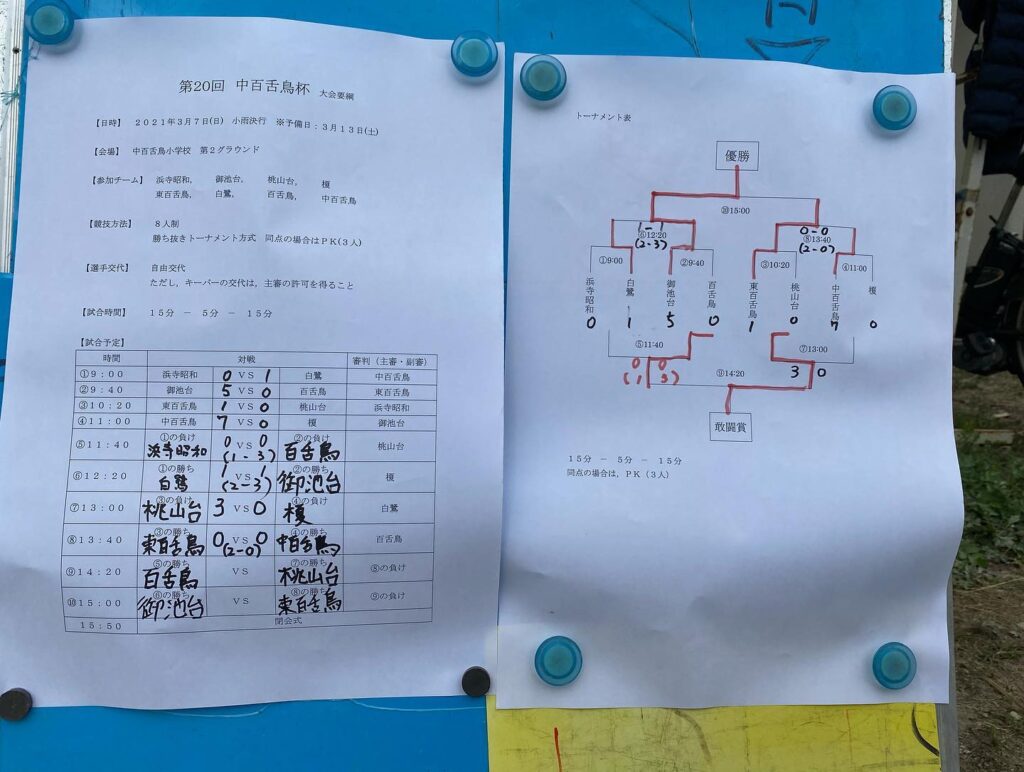 第20回 中百舌鳥杯 大会要綱
【日時】 2021年3月7日(日) 小雨決行 ※予備日：3月13日(土)
【会場】 中百舌鳥小学校 第2グラウンド
【参加チーム】 浜寺昭和， 御池台， 桃山台， 榎
東百舌鳥， 白鷺， 百舌鳥， 中百舌鳥
【競技方法】 8人制
勝ち抜きトーナメント方式 同点の場合はPK(3人)
【選手交代】 自由交代
ただし，キーパーの交代は，主審の許可を得ること
【試合時間】 15分 － 5分 － 15分
【試合予定】
時間 対戦 審判（主審・副審）
①9：00 浜寺昭和 0 VS 1 白鷺 中百舌鳥
②9：40 御池台 5 VS 0 百舌鳥 東百舌鳥
③10：20 東百舌鳥 1 VS 0 桃山台 浜寺昭和
④11：00 中百舌鳥 7 VS 0 榎 御池台
①の負け ②の負け
⑤11：40 浜寺昭和 0 VS 0 百舌鳥 桃山台
(1-3)
①の勝ち ②の勝ち
⑥12：20 白鷺 1 VS 1 御池台 榎
(2-3)
③の負け ④の負け
⑦13：00 桃山台 3 VS 0 榎 白鷺
③の勝ち ④の勝ち
⑧13：40 東百舌鳥 0 VS 0 中百舌鳥 百舌鳥
(2-0)
⑤の勝ち ⑦の勝ち
⑨14：20 百舌鳥 VS 桃山台 ⑧の負け
⑥の勝ち ⑧の勝ち
⑩15：00 御池台 VS 東百舌鳥 ⑨の負け
15：50 閉会式
トーナメント表
優勝
⑩15:00
1-1 0-0
⑥12:20 ⑧13:40
(2-3) (2-0)
①9:00 ②9:40 ③10:20 ④11:00
浜寺昭和 白鷺 御池台 百舌鳥 東百舌鳥 桃山台 中百舌鳥 榎
0 1 5 0 1 0 7 0
⑤11:40 ⑦13:00
0 0 3 0
(1 3) ⑨14:20
敢闘賞
15分 － 5分 － 15分
同点の場合は，PK（3人）